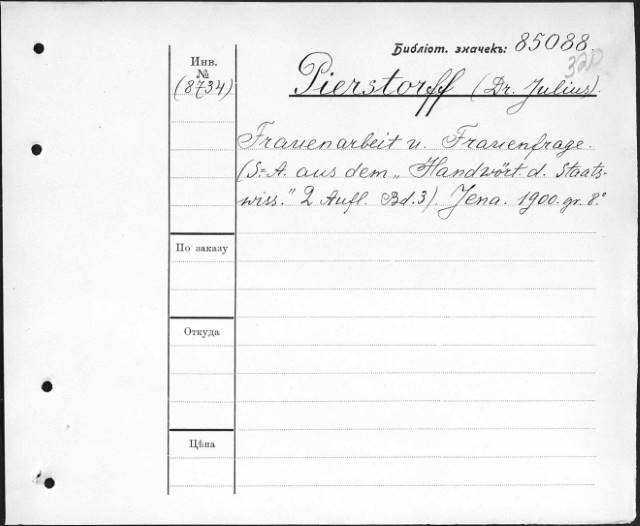 Библіот. значекъ: 85088.
320
Инв.
№
(8734)
Pierstorff (Dr. Julius).
Frauenarbeit u. Frauenfrage.
(S=A. aus dem „Handwört. d. Staats-
wiss." 2 Aufl. Bd. 3). Jena. 1900. gr. 8.°
По заказу
Откуда
Цѣна